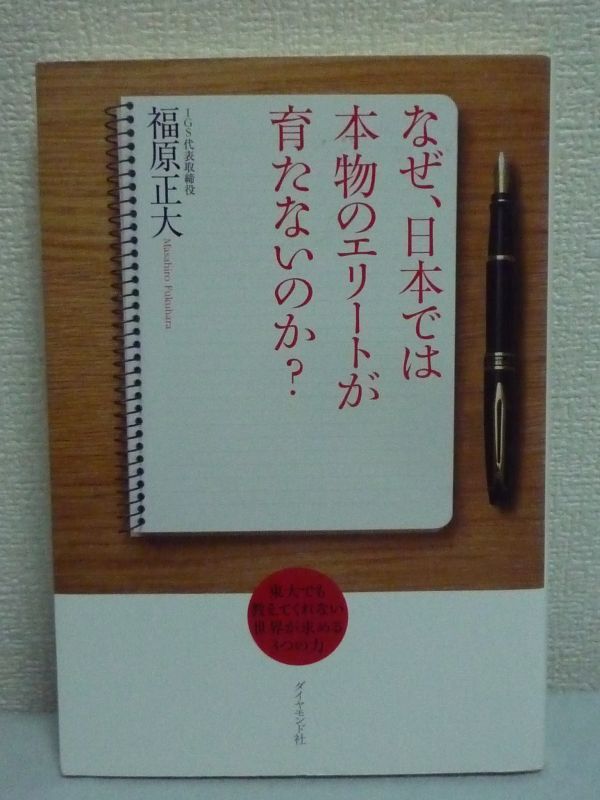 なぜ、日本では
本物のエリートが
育たないのか?
IGS代表取締役
福原正大
Masahiro Fukuhara
東大でも
教えてくれない
世界が求める
つの力
ダイヤモンド社